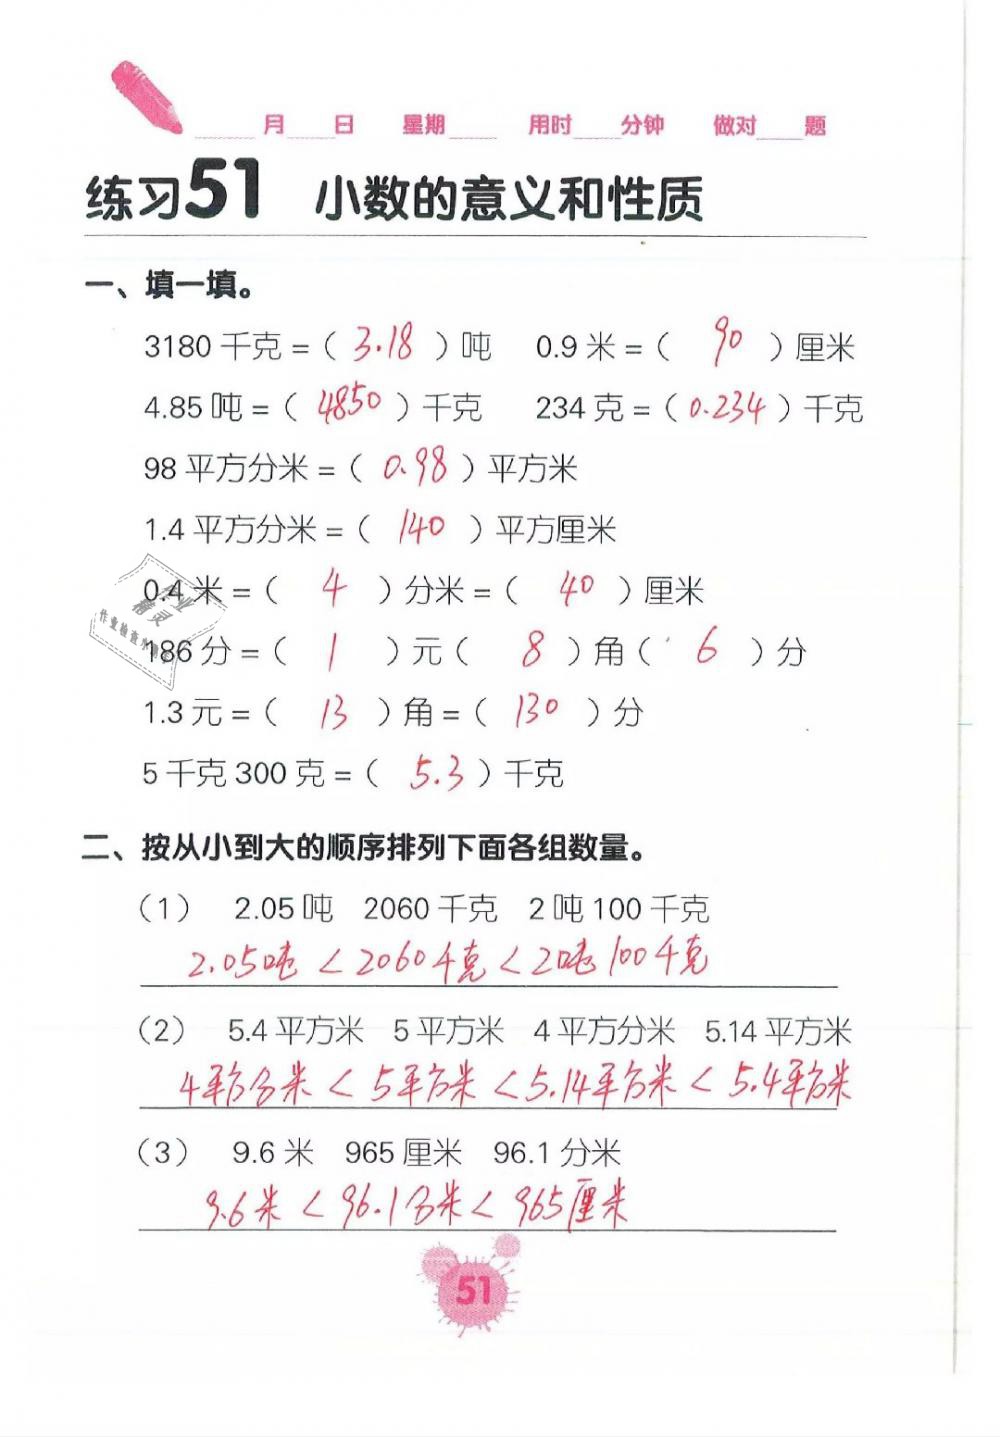 ____月____日 星期____ 用时____分钟 做对____题
练习51 小数的意义和性质
一、填一填。
3180千克=(3.18)吨 0.9米=(90)厘米
4.85吨=(4850)千克 234克=(0.234)千克
98平方分米=(0.98)平方米
1.4平方分米=(140)平方厘米
0.4米=(4)分米=(40)厘米
作业
精灵
186分=(1)元(8)角(6)分
1.3元=(13)角=(130)分
5千克300克=(5.3)千克
二、按从小到大的顺序排列下面各组数量。
(1) 2.05吨 2060千克 2吨100千克
2.05吨<2060千克<2吨100千克
(2) 5.4平方米 5平方米 4平方分米 5.14平方米
4平方分米<5平方米<5.14平方米<5.4平方米
(3) 9.6米 965厘米 96.1分米
9.6米<96.1分米<965厘米
51